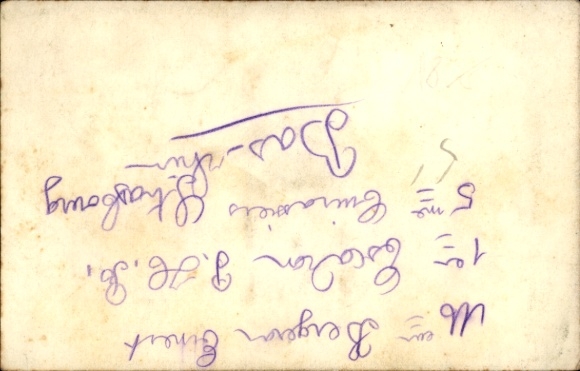 Mr Bergeron Ernest
1er Escadron P. H. R.
5me Cuirassiers Strasbourg
Bas-rhin